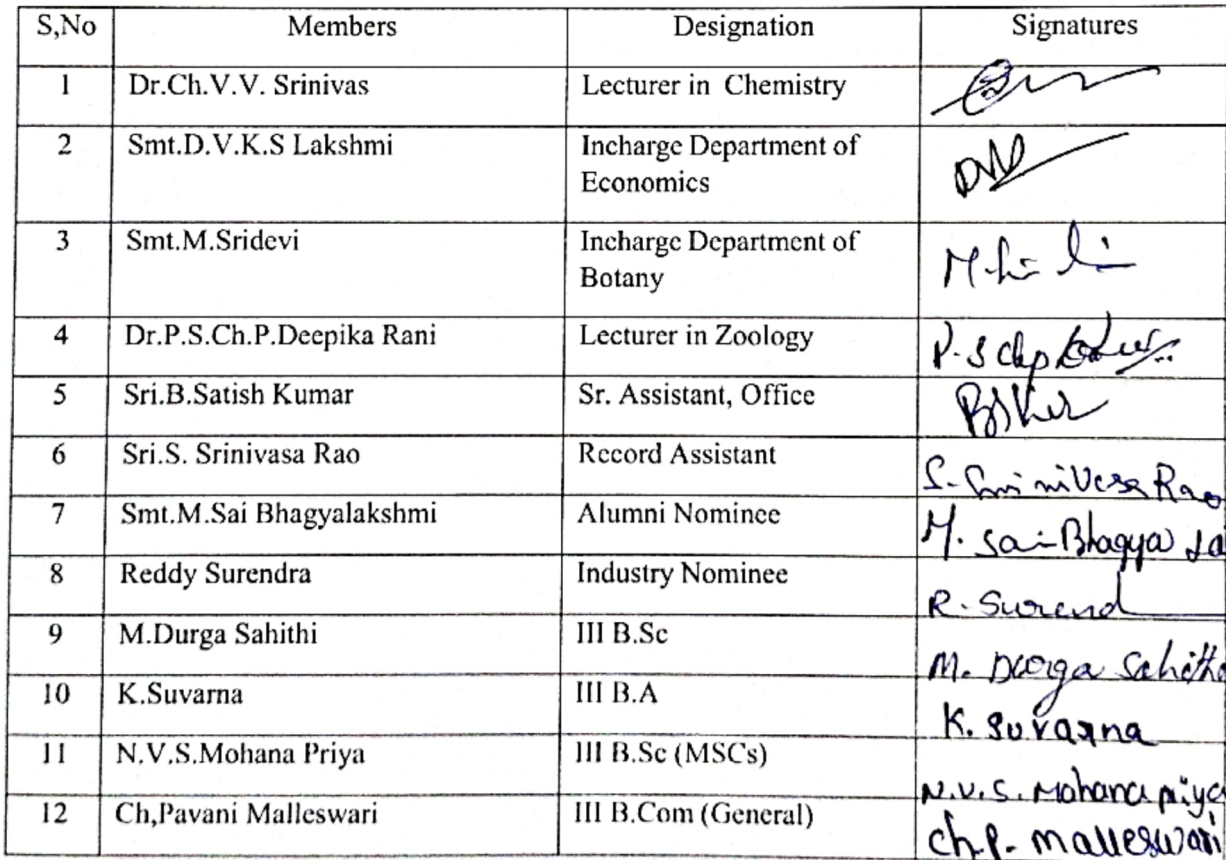 S,No Members Designation Signatures
1 Dr.Ch.V.V. Srinivas Lecturer in Chemistry
2 Smt.D.V.K.S Lakshmi Incharge Department of
Economics
3 Smt.M.Sridevi Incharge Department of
Botany
4 Dr.P.S.Ch.P.Deepika Rani Lecturer in Zoology
5 Sri.B.Satish Kumar Sr. Assistant, Office
6 Sri.S. Srinivasa Rao Record Assistant
S. Srinivasa Rao
7 Smt.M.Sai Bhagyalakshmi Alumni Nominee
M. Sai Bhagya La
8 Reddy Surendra Industry Nominee
R. Surend
9 M.Durga Sahithi III B.Sc
M. Durga Sahith
10 K.Suvarna III B.A
K. Suvarna
11 N.V.S.Mohana Priya III B.Sc (MSCs)
N.V.S. Mohana priya
12 Ch,Pavani Malleswari III B.Com (General)
Ch.P. Malleswari